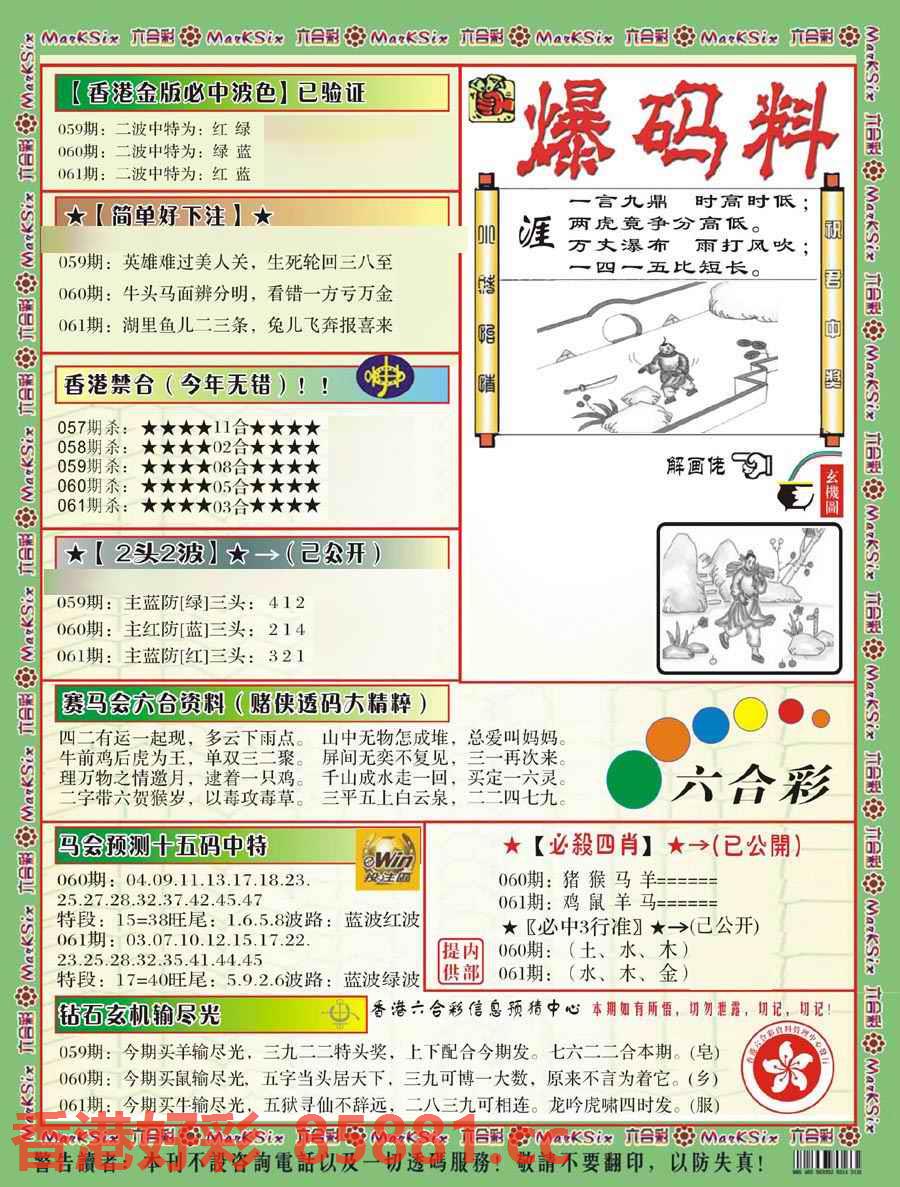 MarKSix 六合彩 MarKSix 六合彩 MarKSix 六合彩 MarKSix 六合彩 MarKSix 六合彩
【香港金版必中波色】已验证
059期：二波中特为：红 绿
060期：二波中特为：绿 蓝
061期：二波中特为：红 蓝
★【简单好下注】★
059期：英雄难过美人关，生死轮回三八至
060期：牛头马面辨分明，看错一方亏万金
061期：湖里鱼儿二三条，兔儿飞奔报喜来
香港禁合（今年无错）！！
057期杀：★★★★11合★★★★
058期杀：★★★★02合★★★★
059期杀：★★★★08合★★★★
060期杀：★★★★05合★★★★
061期杀：★★★★03合★★★★
★【 2头2波】★→（已公开）
059期：主蓝防[绿]三头：4 1 2
060期：主红防[蓝]三头：2 1 4
061期：主蓝防[红]三头：3 2 1
爆码料
涯
一言九鼎 时高时低；
两虎竟争分高低。
万丈瀑布 雨打风吹；
一四一五比短长。
祝君中奖
解画佬
玄機圖
赛马会六合资料（赌侠透码大精粹）
四二有运一起现，多云下雨点。 山中无物怎成堆，总爱叫妈妈。
牛前鸡后虎为王，单双三二聚。 屏间无奕不复见，三一再次来。
理万物之情邀月，逮着一只鸡。 千山成水走一回，买定一六灵。
二字带六贺猴岁，以毒攻毒草。 三平五上白云泉，二二四七九。
六合彩
马会预测十五码中特
eWin
投注區
060期：04.09.11.13.17.18.23.
25.27.28.32.37.42.45.47
特段：15=38旺尾：1.6.5.8波路：蓝波红波
061期：03.07.10.12.15.17.22.
23.25.28.32.35.41.44.45
特段：17=40旺尾：5.9.2.6波路：蓝波绿波
★【必殺四肖】★→(已公開)
060期：猪 猴 马 羊======
061期：鸡 鼠 羊 马======
★〖必中3行准〗★→(已公开)
060期：（土、水、木）
061期：（水、木、金）
内部提供
钻石玄机输尽光
香港六合彩信息预猜中心 本期如有所悟，切勿泄露，切记，切记！
059期：今期买羊输尽光，三九二二特头奖，上下配合今期发。七六二二合本期。(皂)
060期：今期买鼠输尽光，五字当头居天下，三九可博一大数，原来不言为着它。(乡)
061期：今期买牛输尽光，五狱寻仙不辞远，二八三九可相连。龙吟虎啸四时发。(服)
香港好彩 85881.cc
MarKSix 六合彩 MarKSix 六合彩 MarKSix 六合彩 MarKSix 六合彩 MarKSix 六合彩
警告讀者：本刊不設咨詢電話以及一切透碼服務！敬請不要翻印，以防失真！